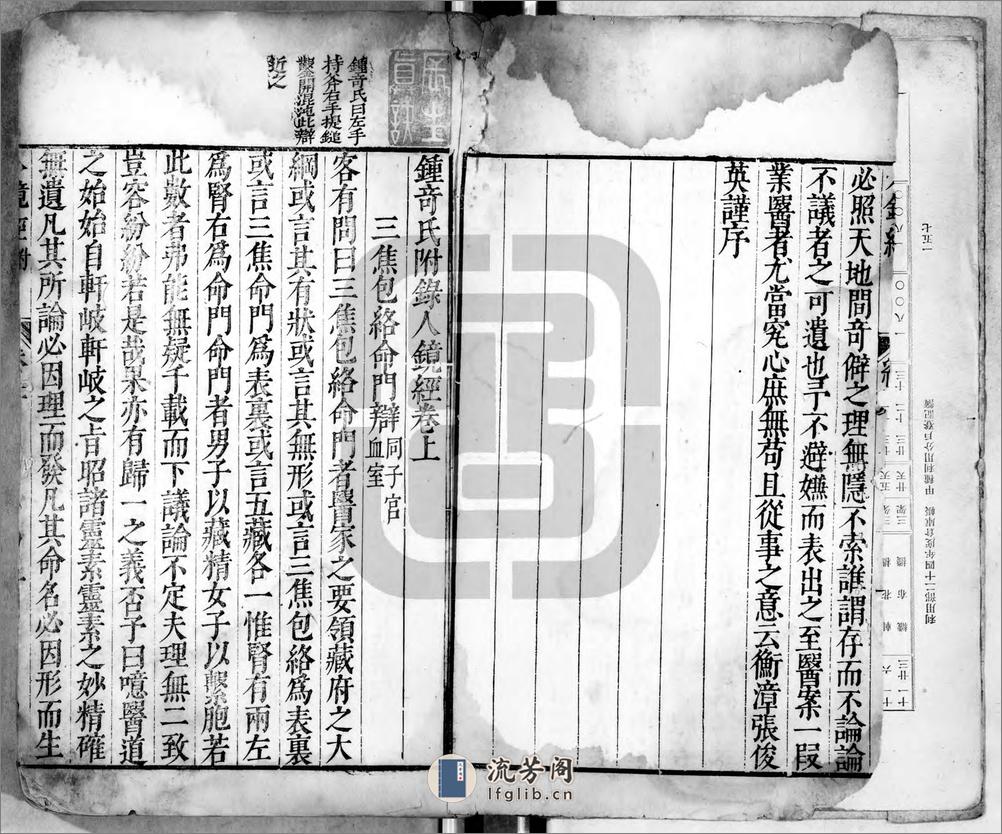 必照天地間奇僻之理無隱不索誰謂存而不論論
不議者之可遺也予不避嫌而表出之至醫案一段
業醫者尤當究心庶無苟且從事之意云衡漳張俊
英謹序
鍾奇氏曰左手
持斧右手提鎚
鑿開混沌此辯
近之
鍾奇氏附錄人鏡經卷上
三焦包絡命門辯同子宮血室
客有問曰三焦包絡命門者醫家之要領藏府之大
綱或言其有狀或言其無形或言三焦包絡爲表裏
或言三焦命門爲表裏或言五藏各一惟腎有兩左
爲腎右爲命門命門者男子以藏精女子以繫胞若
此數者弗能無疑千載而下議論不定夫理無二致
豈容紛紛若是哉果亦有歸一之義否予曰噫醫道
之始始自軒岐軒岐之旨昭諸靈素靈素之妙精確
無遺凡其所論必因理而發凡其命名必因形而生
一五七
利用部二十四年度倉庫帳 甲種利用分戶登記簿
流芳阁
lfglib.cn